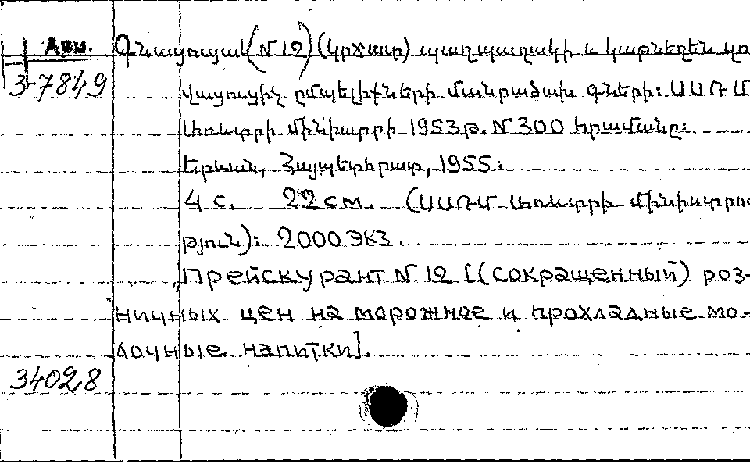 Арм. Գնացուցակ (N 12) (կրճատ) պաղպաղակի և կաթնեղեն զո-
3-7849 վացուցիչ ըմպելիքների մանրածախ գների: ՍՍՌՄ
Առևտրի մինիստրի 1953թ. N 300 հրամանը:
Երևան, Հայպետհրատ, 1955:
4 с. 22 см. (ՍՍՌՄ Առևտրի մինիստրու-
թյուն): 2000 экз.
[Прейскурант N 12 [(сокращенный) роз-
ничных цен на морожное и прохладные мо-
лочные напитки].
34028